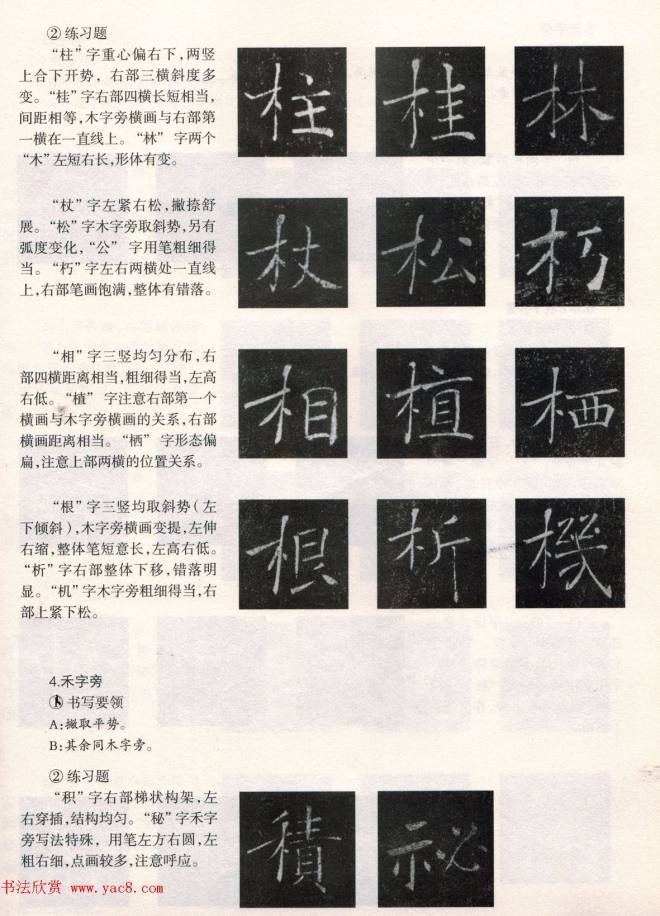 ② 练习题
“柱”字重心偏右下,两竖
上合下开势，右部三横斜度多
变。“桂”字右部四横长短相当，
间距相等,木字旁横画与右部第
一横在一直线上。“林”字两个
“木”左短右长,形体有变。
柱 桂 林
“杖”字左紧右松,撇捺舒
展。“松”字木字旁取斜势,另有
弧度变化，“公”字用笔粗细得
当。“朽”字左右两横处一直线
上,右部笔画饱满,整体有错落。
杖 松 朽
“相”字三竖均匀分布,右
部四横距离相当,粗细得当,左高
右低。“植”字注意右部第一个
横画与木字旁横画的关系,右部
横画距离相当。“栖”字形态偏
扁,注意上部两横的位置关系。
相 植 栖
“根”字三竖均取斜势(左
下倾斜),木字旁横画变提,左伸
右缩,整体笔短意长,左高右低。
“析”字右部整体下移,错落明
显。“机”字木字旁粗细得当,右
部上紧下松。
根 析 機
4.禾字旁
① 书写要领
A:撇取平势。
B:其余同木字旁。
② 练习题
“积”字右部梯状构架,左
右穿插,结构均匀。“秘”字禾字
旁写法特殊，用笔左方右圆,左
粗右细,点画较多,注意呼应。
積 祕
书法欣赏 www.yac8.com